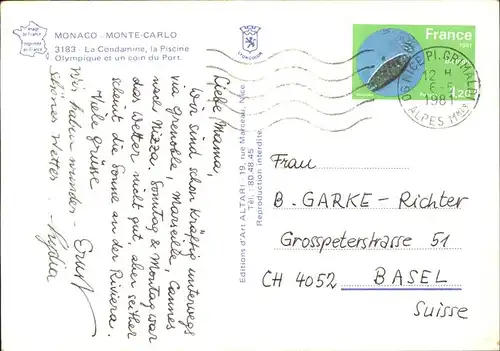 MONACO - MONTE-CARLO
3183 - La Condamine, la Piscine
Olympique et un coin du Port.
Liebe Mama,
Wir sind schon kräftig unterwegs
via Grenoble, Marseille, Cannes
nach Nizza. Sonntag & Montag war
das Wetter nicht gut, aber seither
scheint die Sonne an der Riviera.
Viele grüsse
Ernst
Wir haben wunder-
schönes Wetter. - Lydia
Editions d'Art ALTARI - 19, rue Marceau, Nice.
Tél.: 80.48.45
Reproduction interdite.
France
1981
1,20
06 NICE PL. GRIMALDI
12 H
6-5
1981
ALPES MMES
Frau
B. GARKE-Richter
Grosspeterstrasse 51
CH 4052 BASEL
Suisse